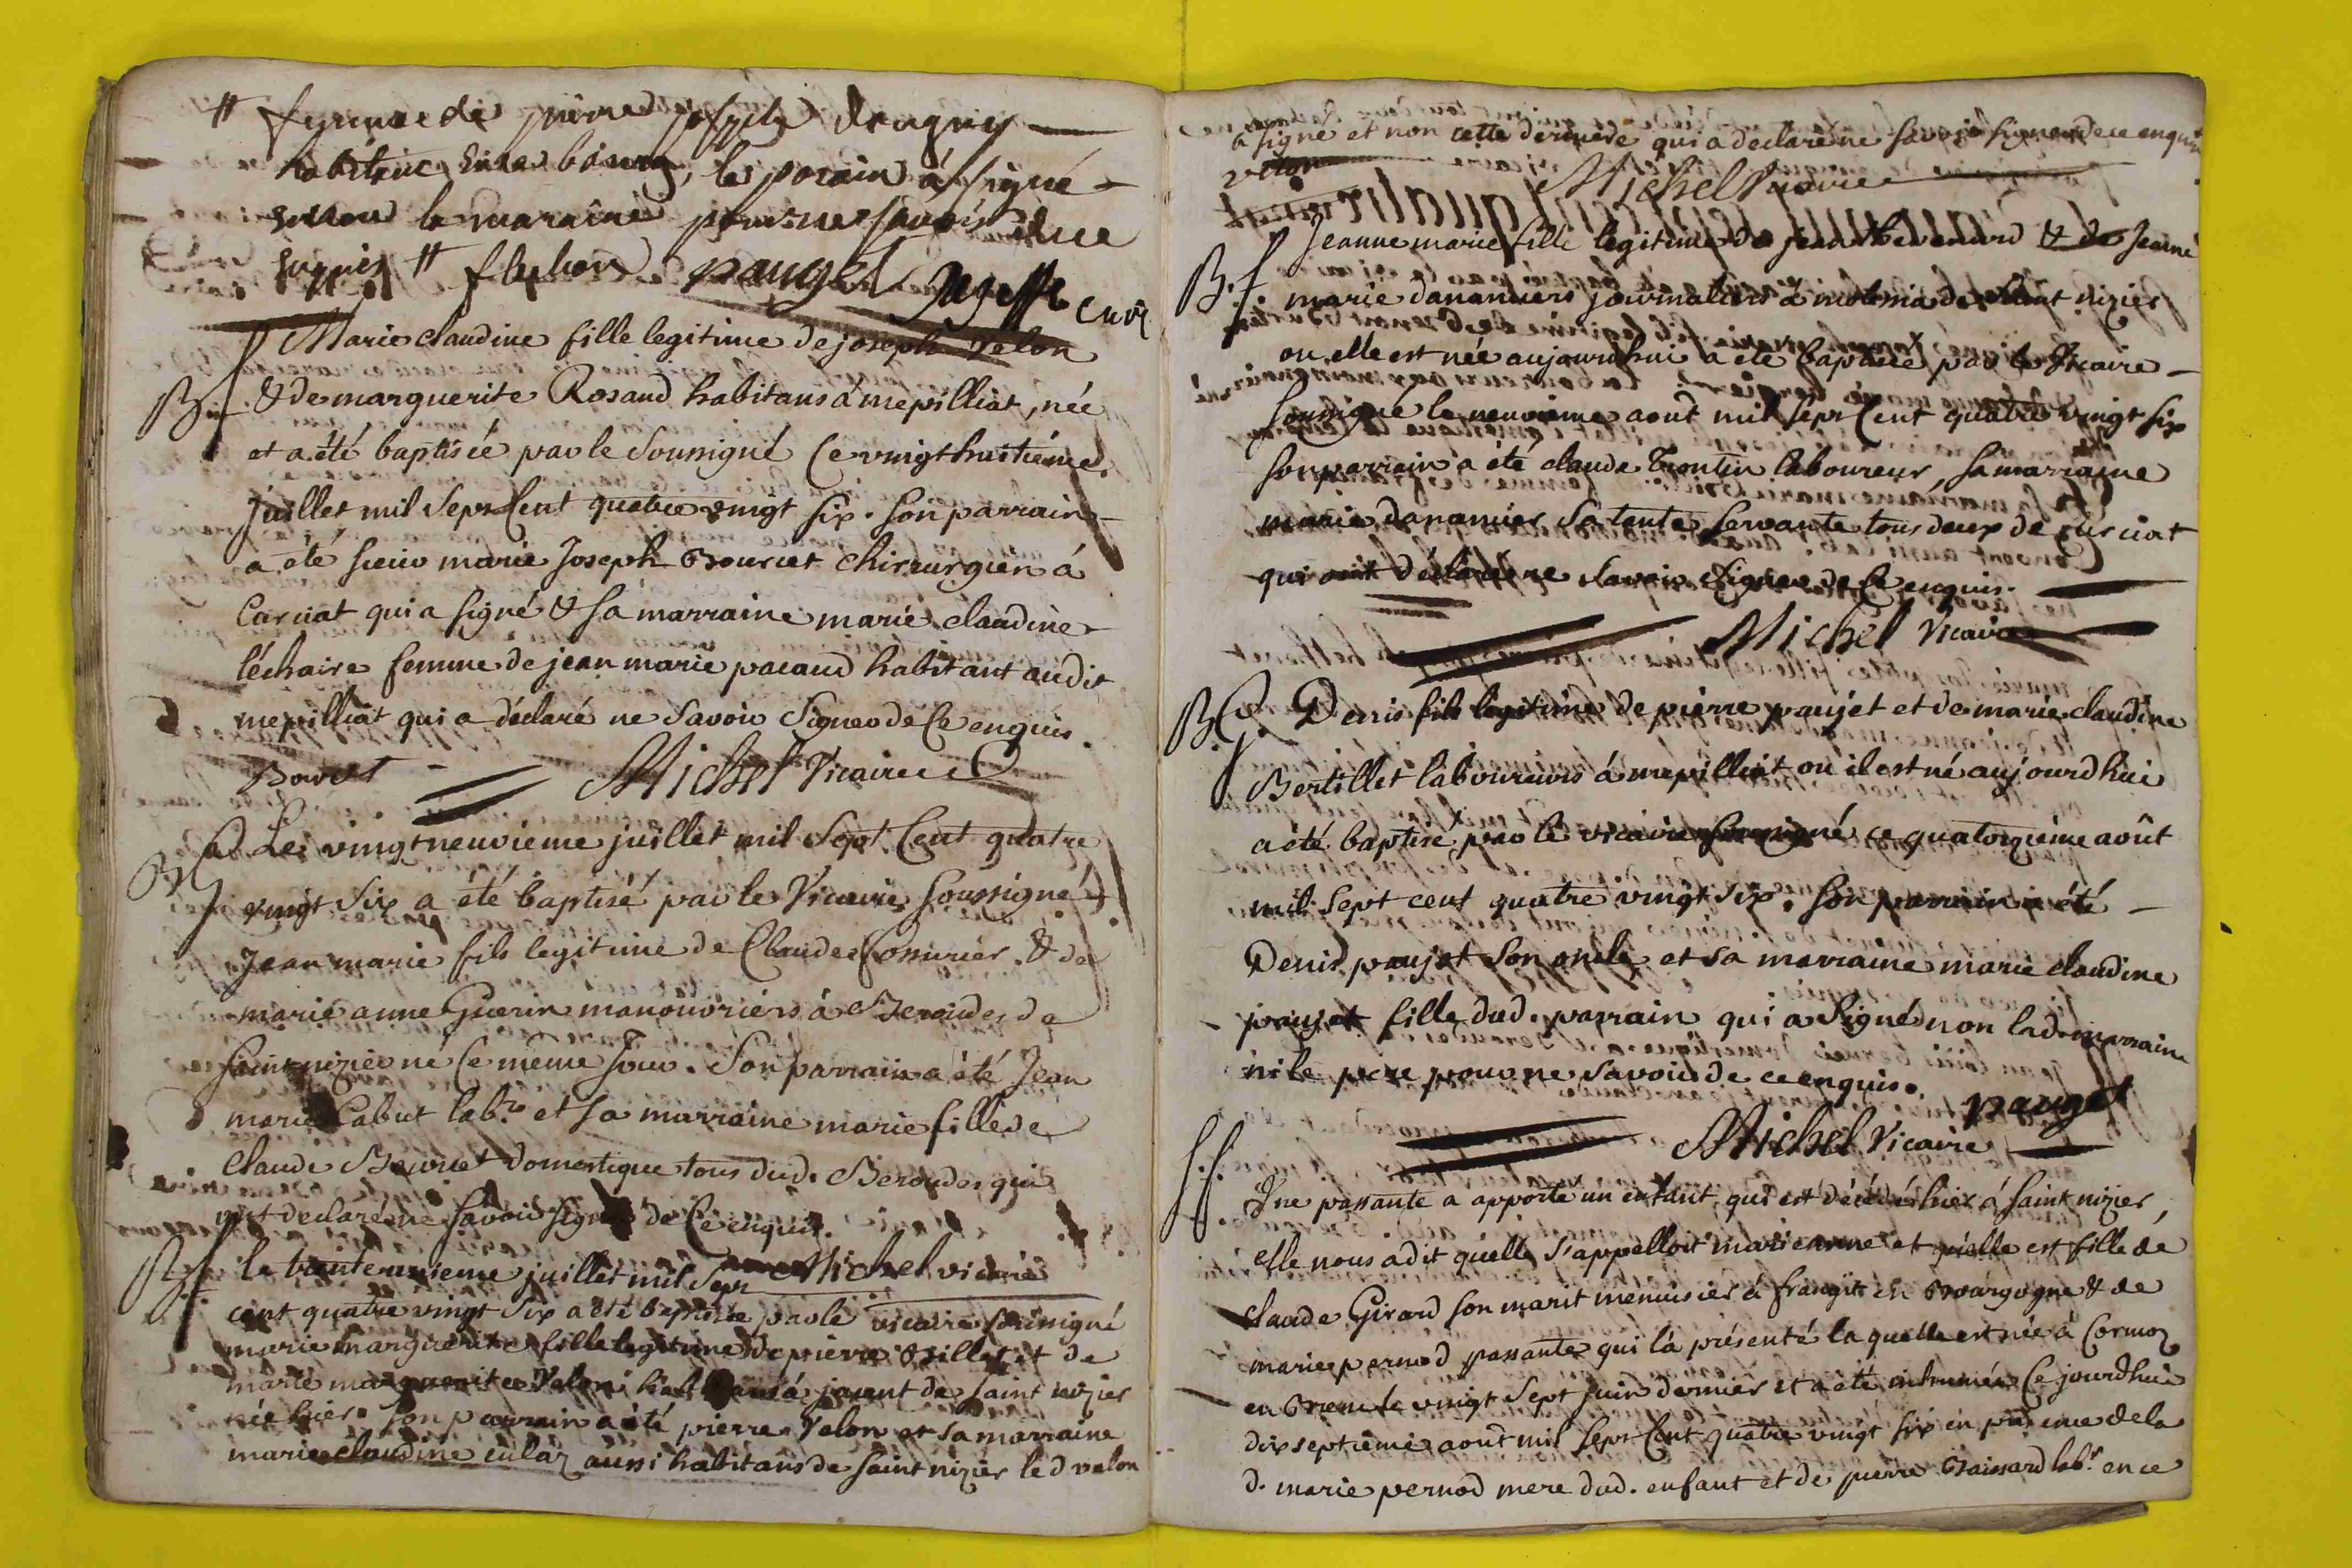 # femme de pierre joseph
habitant au bourg, le parain a signé
non la maraine pour ne savoir de ce
enquis # pauget cure
Marie claudine fille legitime de joseph Velon
B. f. & de marguerite Rosand habitans á mepilliat, née
et a été baptisée par le Soussigné Ce vingt huitiéme
Juillet mil Sept Cent quatre vingt six. son parrain
a été Sieur marie Joseph Bourcet Chirurgien á
Curciat qui a signé & sa marraine marie claudine
léchaire femme de jean marie pacaud habitant audit
mepilliat qui a déclaré ne Savoir Signer de Ce enquis.
Bourcet Michel Vicaire
B. G. Le vingt neuvieme juillet mil Sept Cent quatre
vingt Six a été baptisé par le Vicaire Soussigné
Jean marie fils legitime de Claude & de
marie anne Guerin manouvriers á Beroudes de
Saint nizier né Ce meme Jour. Son parrain a été Jean
marie Cabut labr. et sa marraine marie fille de
Claude domestique tous dud. Beroudes qui
ont declaré ne Savoir Signer de Ce enquis.
Michel vicaire
B. f. le trente unieme juillet mil Sept
cent quatre vingt Six a été baptisée par le vicaire Soussigné
marie marguerite fille legitime de pierre & de
marie marguerite Velon habitans á jouent de saint nizier
née hier. Son parrain a été pierre Velon et sa marraine
marie claudine aussi habitans de saint nizier led velon
a signé et non cette derniere qui a declaré ne savoir signer de ce enquis
velon
Michel Vicaire
Jeanne marie fille legitime de jean thevenard & de Jeanne
B. f. marie dananciers journaliers á de Saint nizier
ou elle est née aujourd'hui a été baptisée par le Vicaire
Soussigné le neuvieme aout mil Sept Cent quatre vingt six
Son parrain a été claude Trontin laboureur, sa marraine
marie sa tante servante tous deux de Curciat
qui ont déclaré ne Savoir Signer de Ce enquis.
Michel Vicaire
B. G. Denis fils legitime de pierre paujet et de marie claudine
Bertillet laboureurs á mepilliat ou il est né aujourdhui
a été baptisé par le vicaire Soussigné ce quatorzieme août
mil Sept cent quatre vingt six. Son parrain a été
Denis paujet Son oncle et sa marraine marie claudine
paujet fille dud. parrain qui a Signé non lad. marraine
ni le pere pour ne Savoir de ce enquis.
pauget
Michel Vicaire
S. f. Une passante a apporté un enfant qui est décédé hier á Saint nizier,
elle nous a dit qu'elle s'appelloit marianne et qu'elle est fille de
claude Girard son marit menuisier á frangi en Bourgogne & de
marie pernod passante qui l'a présenté la quelle est née á Cormoz
en Bresse le vingt Sept juin dernier et a été inhumée Ce jourdhui
dix septieme aout mil Sept Cent quatre vingt six en présence de la
d. marie pernod mere dud. enfant et de pierre labr. en ce